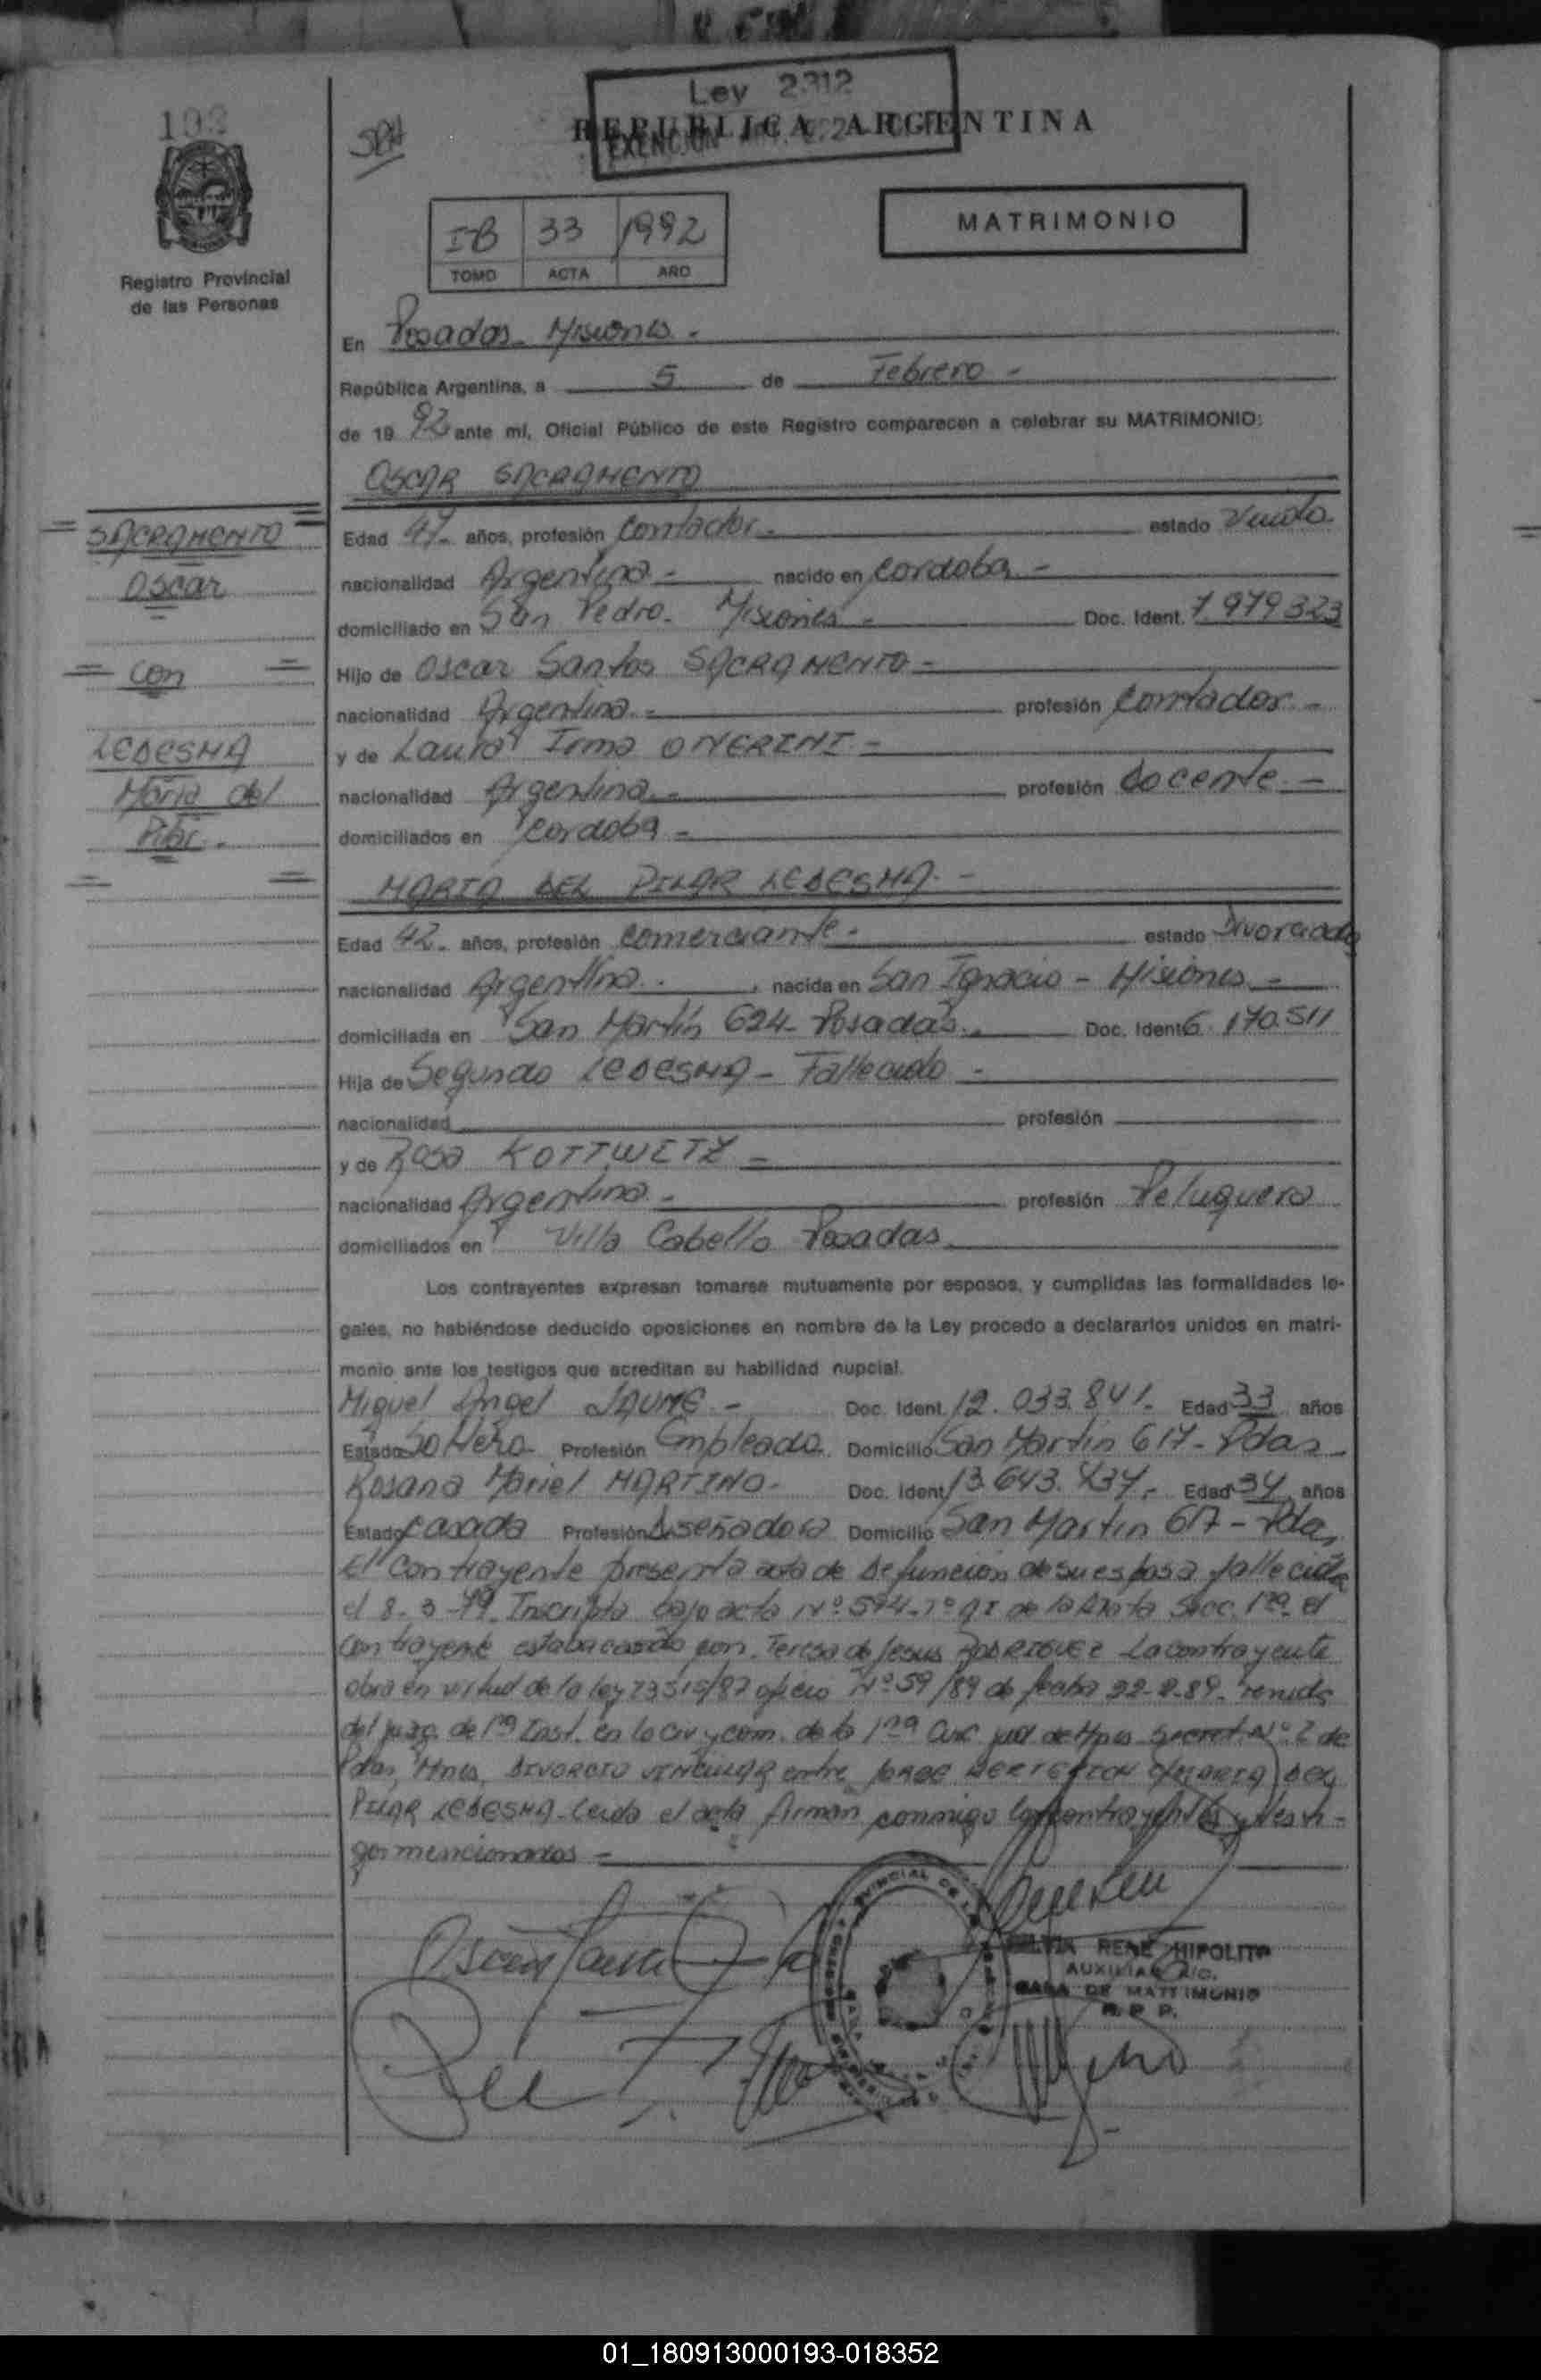 Ley 2312
REPUBLICA ARGENTINA
EXENCION
IB 33 1992
TOMO ACTA AÑO
MATRIMONIO
Registro Provincial
de las Personas
En Posadas - Misiones -
República Argentina, a 5 de Febrero -
de 19 92 ante mí, Oficial Público de este Registro comparecen a celebrar su MATRIMONIO:
OSCAR SACRAMENTO
SACRAMENTO
Oscar
con
LEDESMA
María del
Pilar -
Edad 47- años, profesión Contador - estado Viudo
nacionalidad Argentina - nacido en Cordoba -
domiciliado en San Pedro - Misiones - Doc. Ident. 7.979.323
Hijo de Oscar Santos SACRAMENTO -
nacionalidad Argentina - profesión Contador -
y de Laura Irma -
nacionalidad Argentina - profesión docente -
domiciliados en Cordoba -
MARIA DEL PILAR LEDESMA -
Edad 42- años, profesión comerciante - estado Divorciada
nacionalidad Argentina - , nacida en San Ignacio - Misiones -
domiciliada en San Martín 624 - Posadas - Doc. Ident 6.170.511
Hija de Segundo LEDESMA - Fallecido -
nacionalidad profesión
y de Rosa KOTTWITZ -
nacionalidad Argentina - profesión Peluquera
domiciliados en Villa Cabello Posadas
Los contrayentes expresan tomarse mutuamente por esposos, y cumplidas las formalidades le-
gales, no habiéndose deducido oposiciones en nombre de la Ley procedo a declararlos unidos en matri-
monio ante los testigos que acreditan su habilidad nupcial.
Miguel Angel JAUME - Doc. Ident. 12.033.841 - Edad 33 años
Estado Soltero - Profesión Empleado Domicilio San Martín 617 - Pdas -
Rosana Mariel MARTINO - Doc. Ident 13.643.737 - Edad 34 años
Estado casada Profesión Diseñadora Domicilio San Martín 617 - Pdas
El contrayente presenta acta de defuncion de su esposa fallecida
el 8-3-79. Inscripta bajo acta Nº 594 - Tº de la Secc. 1ra. el
contrayente estaba casado con Teresa de Jesus RODRIGUEZ La contrayente
obra en virtud de la ley 23515/87 oficio Nº 59/89 de fecha 22-2-89 - remida
del juzg. de 1ra Inst. en lo Civ y com. de la 1ra Circ jud de Mnes Secret. Nº 2 de
Pdas, Mnes, DIVORCIO VINCULAR entre JORGE c/MARIA DEL
PILAR LEDESMA - Leida el acta firman conmigo los contrayentes y testi-
gos mencionados -
SILVIA RENE HIPOLITO
AUXILIAR A/C.
SALA DE MATRIMONIO
R. P. P.
01_180913000193-018352